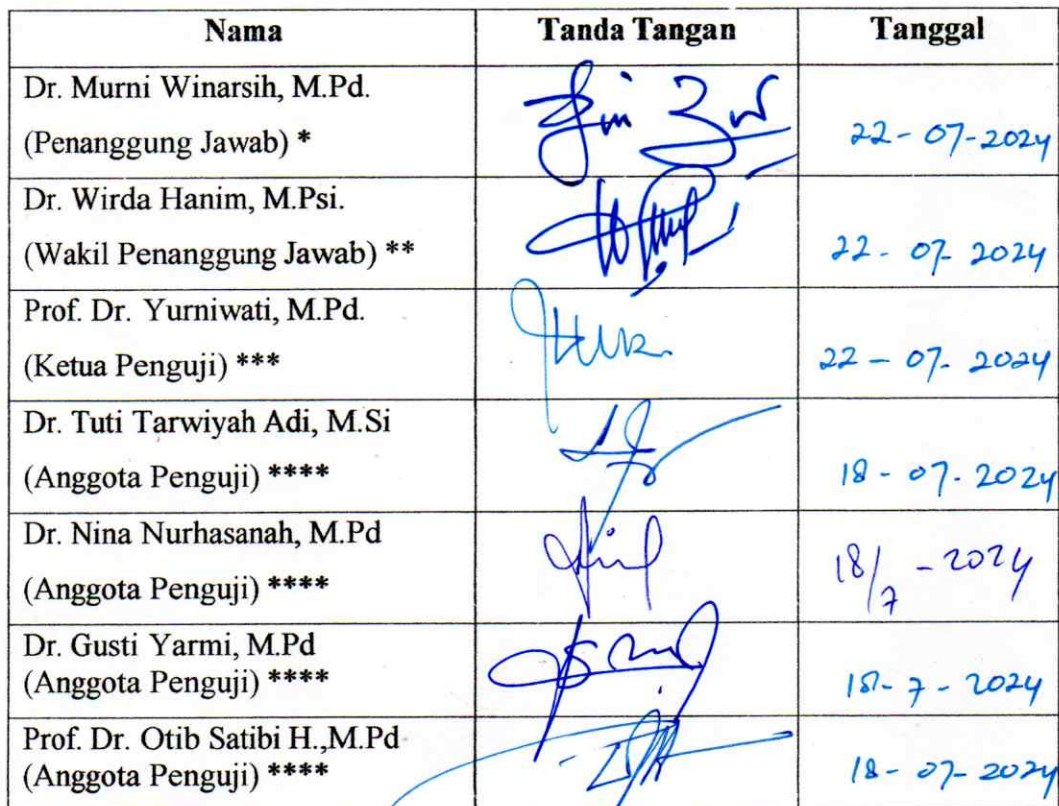 Nama Tanda Tangan Tanggal
Dr. Murni Winarsih, M.Pd.
(Penanggung Jawab) * 22-07-2024
Dr. Wirda Hanim, M.Psi.
(Wakil Penanggung Jawab) ** 22-07-2024
Prof. Dr. Yurniwati, M.Pd.
(Ketua Penguji) *** 22-07-2024
Dr. Tuti Tarwiyah Adi, M.Si
(Anggota Penguji) **** 18-07-2024
Dr. Nina Nurhasanah, M.Pd
(Anggota Penguji) **** 18/7-2024
Dr. Gusti Yarmi, M.Pd
(Anggota Penguji) **** 18-7-2024
Prof. Dr. Otib Satibi H.,M.Pd
(Anggota Penguji) **** 18-07-2024